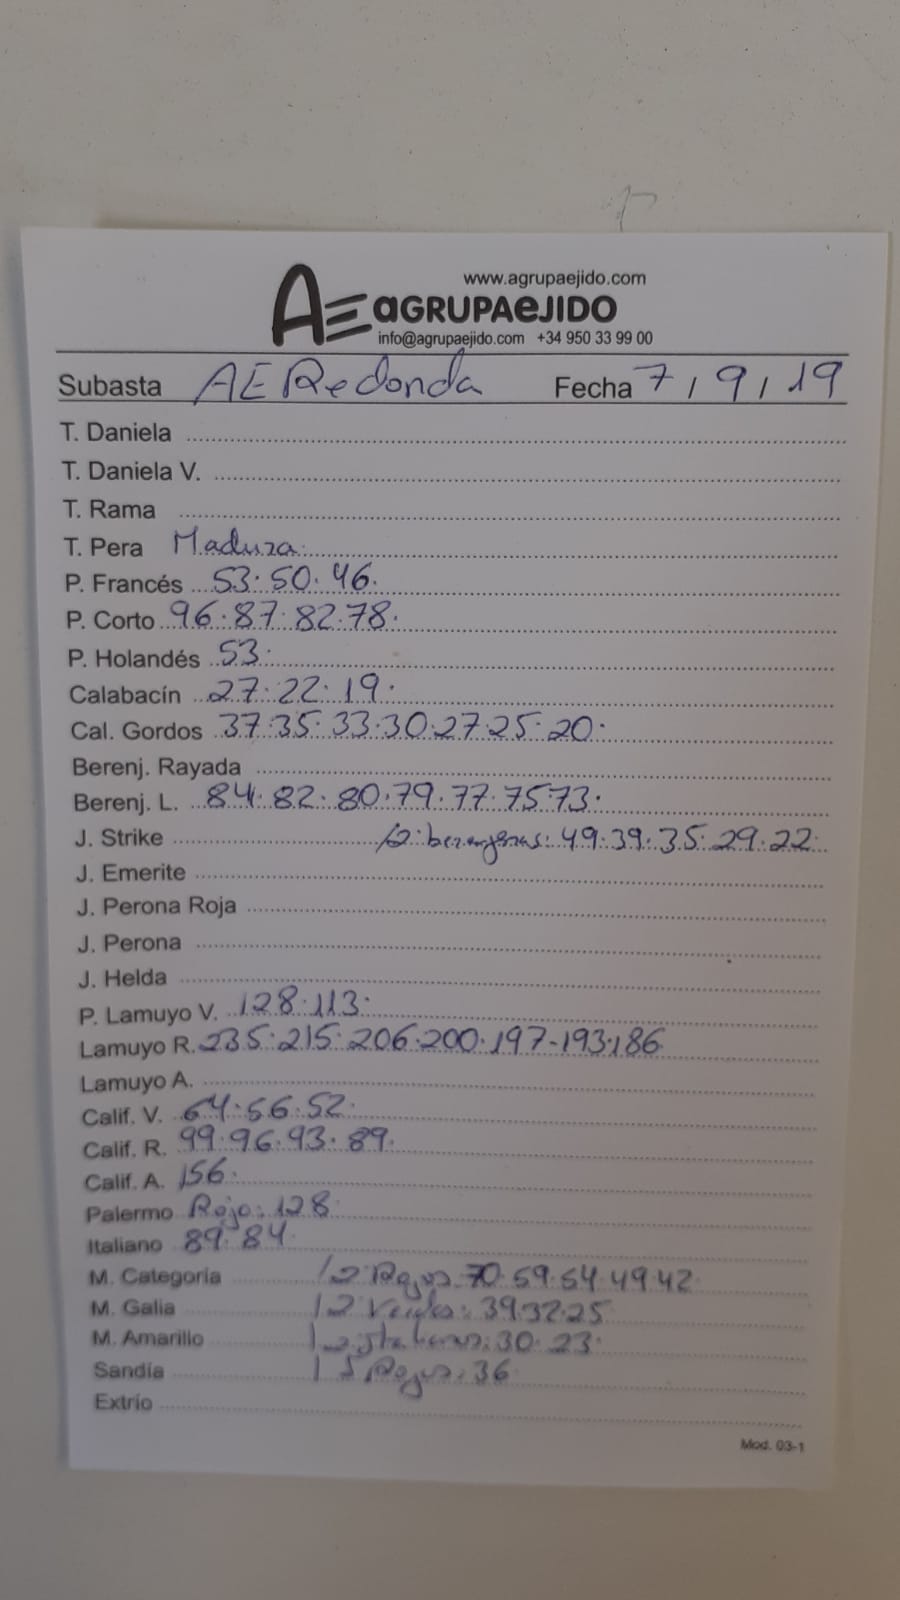 www.agrupaejido.com
AE aGRUPAeJIDO
info@agrupaejido.com +34 950 33 99 00
Subasta AE Redonda Fecha 7/9/19
T. Daniela
T. Daniela V.
T. Rama
T. Pera Maduza.
P. Francés 53.50.46.
P. Corto 96.87.82.78.
P. Holandés 53.
Calabacín 27.22.19.
Cal. Gordos 37.35.33.30.27.25.20.
Berenj. Rayada
Berenj. L. 84.82.80.79.77.75.73.
J. Strike berenjenas: 49.39.35.29.22.
J. Emerite
J. Perona Roja
J. Perona
J. Helda
P. Lamuyo V. 128.113.
Lamuyo R. 235.215.206.200.197-193.186.
Lamuyo A.
Calif. V. 64.56.52.
Calif. R. 99.96.93.89.
Calif. A. 156.
Palermo Rojo: 128.
Italiano 89.84.
M. Categoría 12 Rojos: 70.59.54.49.42
M. Galia 12 Verdes: 39.32.25
M. Amarillo 30.23.
Sandía Rojos: 36.
Extrío
Mod. 03-1